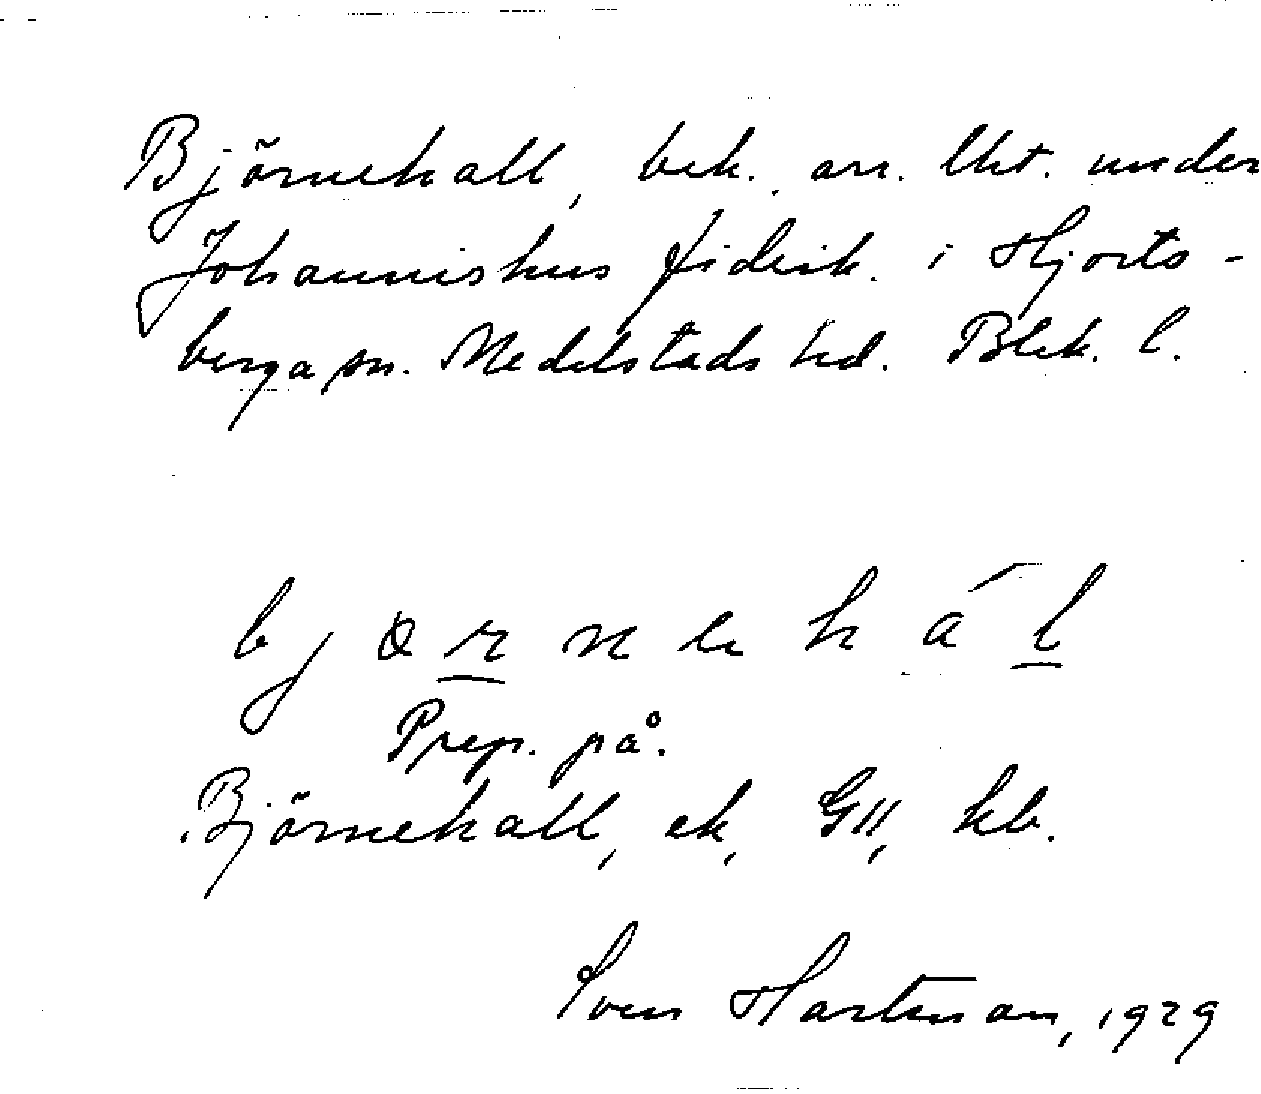 Björnehall, bek. arr. lht. under
Johannishus fideik. i Hjorts-
berga sn. Medelstads hd. Blek. l.
bjørnehál
Prep. på.
Björnehall, ek, GII, kb.
Sven Hartman, 1929